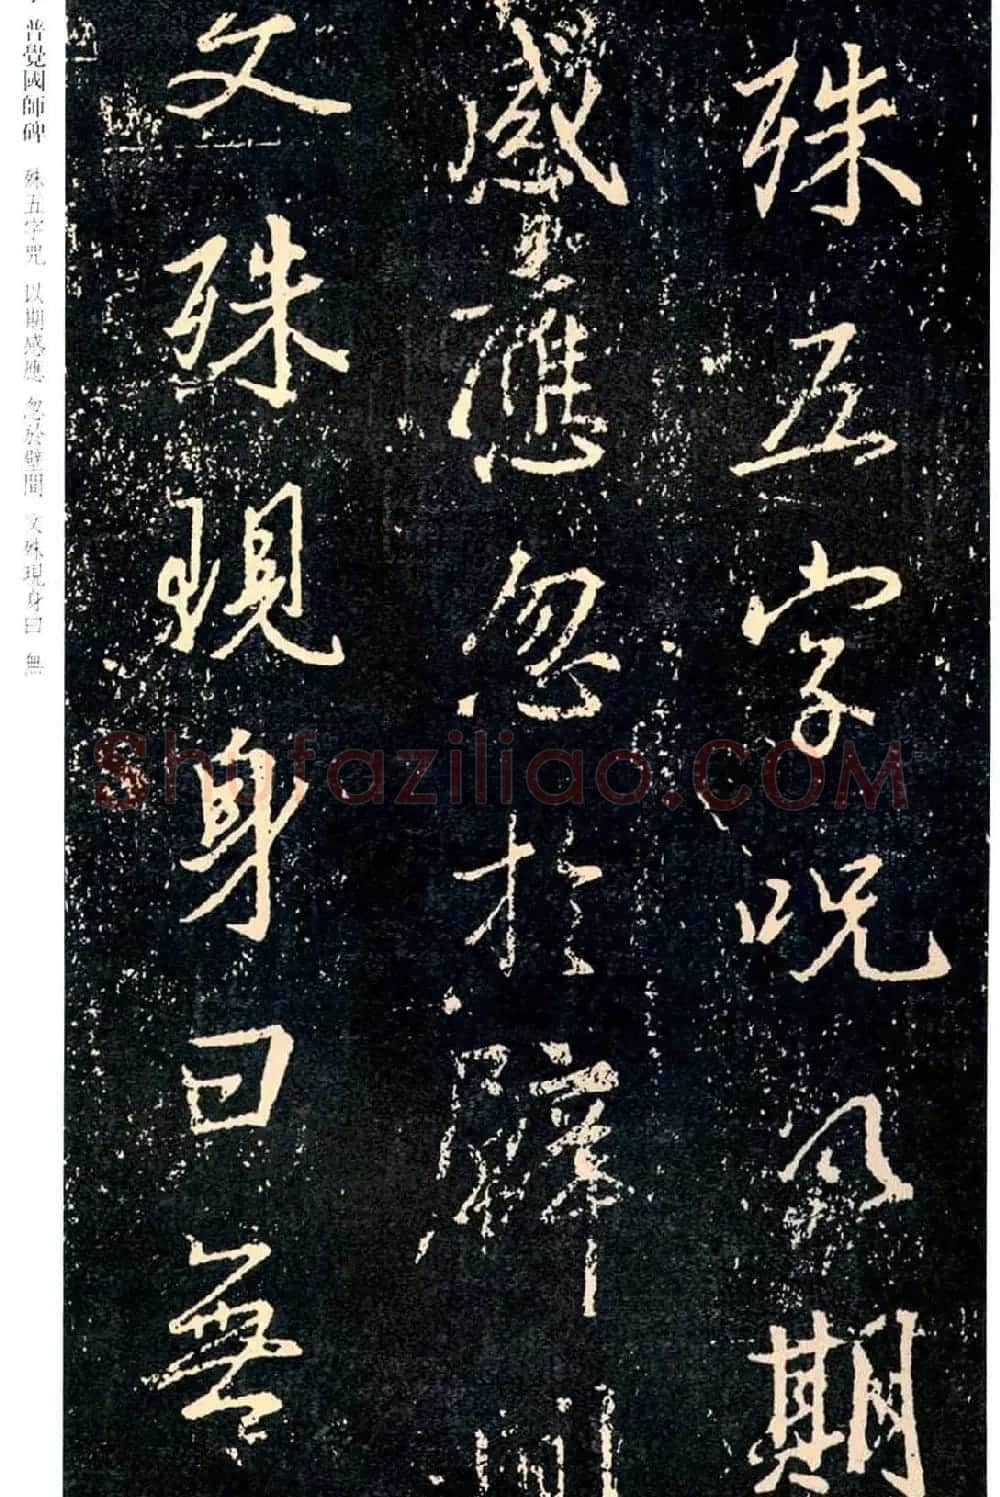 殊五字呪以期
感應忽於壁間
文殊現身曰無
普覺國師碑 殊五字呪 以期感應 忽於壁間 文殊現身曰 無
Shufaziliao.COM